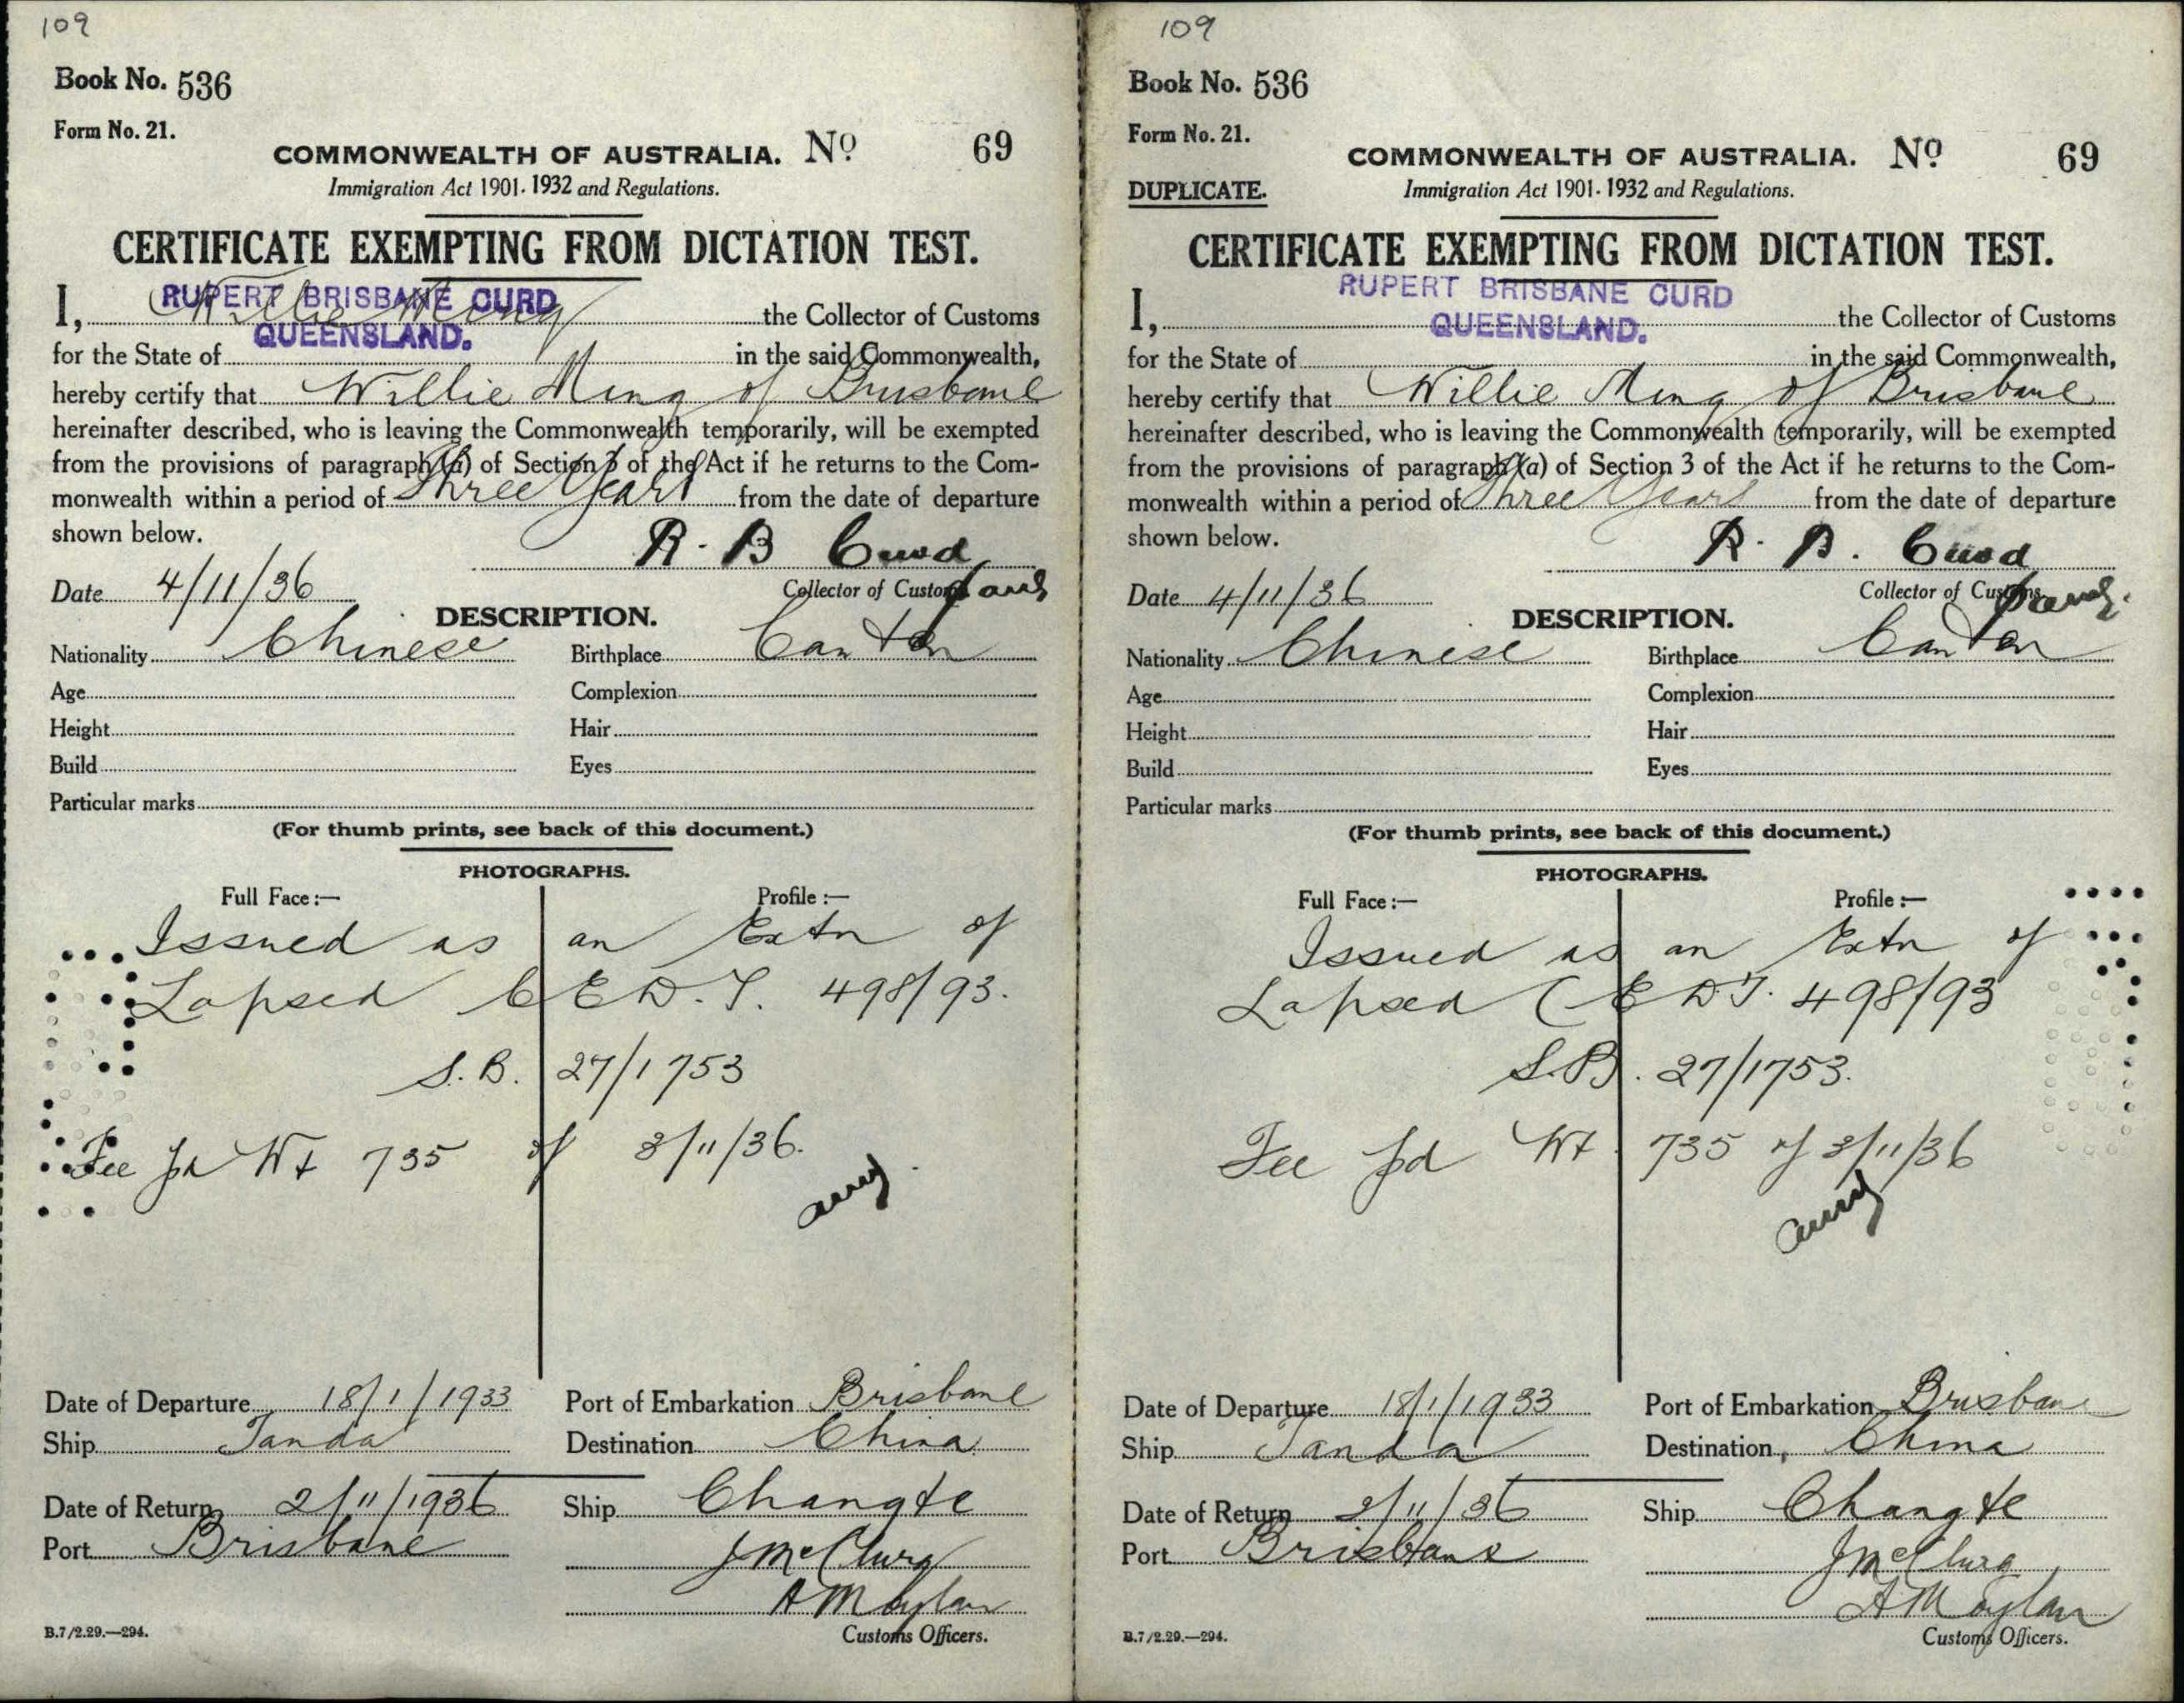 109
Book No. 536
Form No. 21.
COMMONWEALTH OF AUSTRALIA. No 69
Immigration Act 1901-1932 and Regulations.
CERTIFICATE EXEMPTING FROM DICTATION TEST.
RUPERT BRISBANE CURD
I, Willie Ming the Collector of Customs
QUEENSLAND.
for the State of in the said Commonwealth,
hereby certify that Willie Ming of Brisbane
hereinafter described, who is leaving the Commonwealth temporarily, will be exempted
from the provisions of paragraph (a) of Section 3 of the Act if he returns to the Com-
monwealth within a period of Three Years from the date of departure
shown below.
R. B Curd
Date 4/11/36 Collector of Customs
DESCRIPTION.
Nationality Chinese Birthplace Canton
Age Complexion
Height Hair
Build Eyes
Particular marks
(For thumb prints, see back of this document.)
PHOTOGRAPHS.
Full Face :— Profile :—
Issued as an Extn of
Lapsed C E D. T. 498/93.
S. B. 27/1753
Fee pd Wt 735 of 3/11/36.
Date of Departure 18/1/1933 Port of Embarkation Brisbane
Ship Tanda Destination China
Date of Return 2/11/1936 Ship Changte
Port Brisbane J McClurg
A Moylan
B.7/2.29.—294. Customs Officers.
109
Book No. 536
Form No. 21.
COMMONWEALTH OF AUSTRALIA. No 69
DUPLICATE. Immigration Act 1901-1932 and Regulations.
CERTIFICATE EXEMPTING FROM DICTATION TEST.
RUPERT BRISBANE CURD
I, the Collector of Customs
QUEENSLAND.
for the State of in the said Commonwealth,
hereby certify that Willie Ming of Brisbane
hereinafter described, who is leaving the Commonwealth temporarily, will be exempted
from the provisions of paragraph (a) of Section 3 of the Act if he returns to the Com-
monwealth within a period of Three Years from the date of departure
shown below.
R. B. Curd
Date 4/11/36 Collector of Customs
DESCRIPTION.
Nationality Chinese Birthplace Canton
Age Complexion
Height Hair
Build Eyes
Particular marks
(For thumb prints, see back of this document.)
PHOTOGRAPHS.
Full Face :— Profile :—
Issued as an Extn of
Lapsed C E D T. 498/93
S. B. 27/1753.
Fee pd Wt 735 of 3/11/36
Date of Departure 18/1/1933 Port of Embarkation Brisbane
Ship Tanda Destination, China
Date of Return 2/11/36 Ship Changte
Port Brisbane J McClurg
A Moylan
B.7/2.29.—294. Customs Officers.